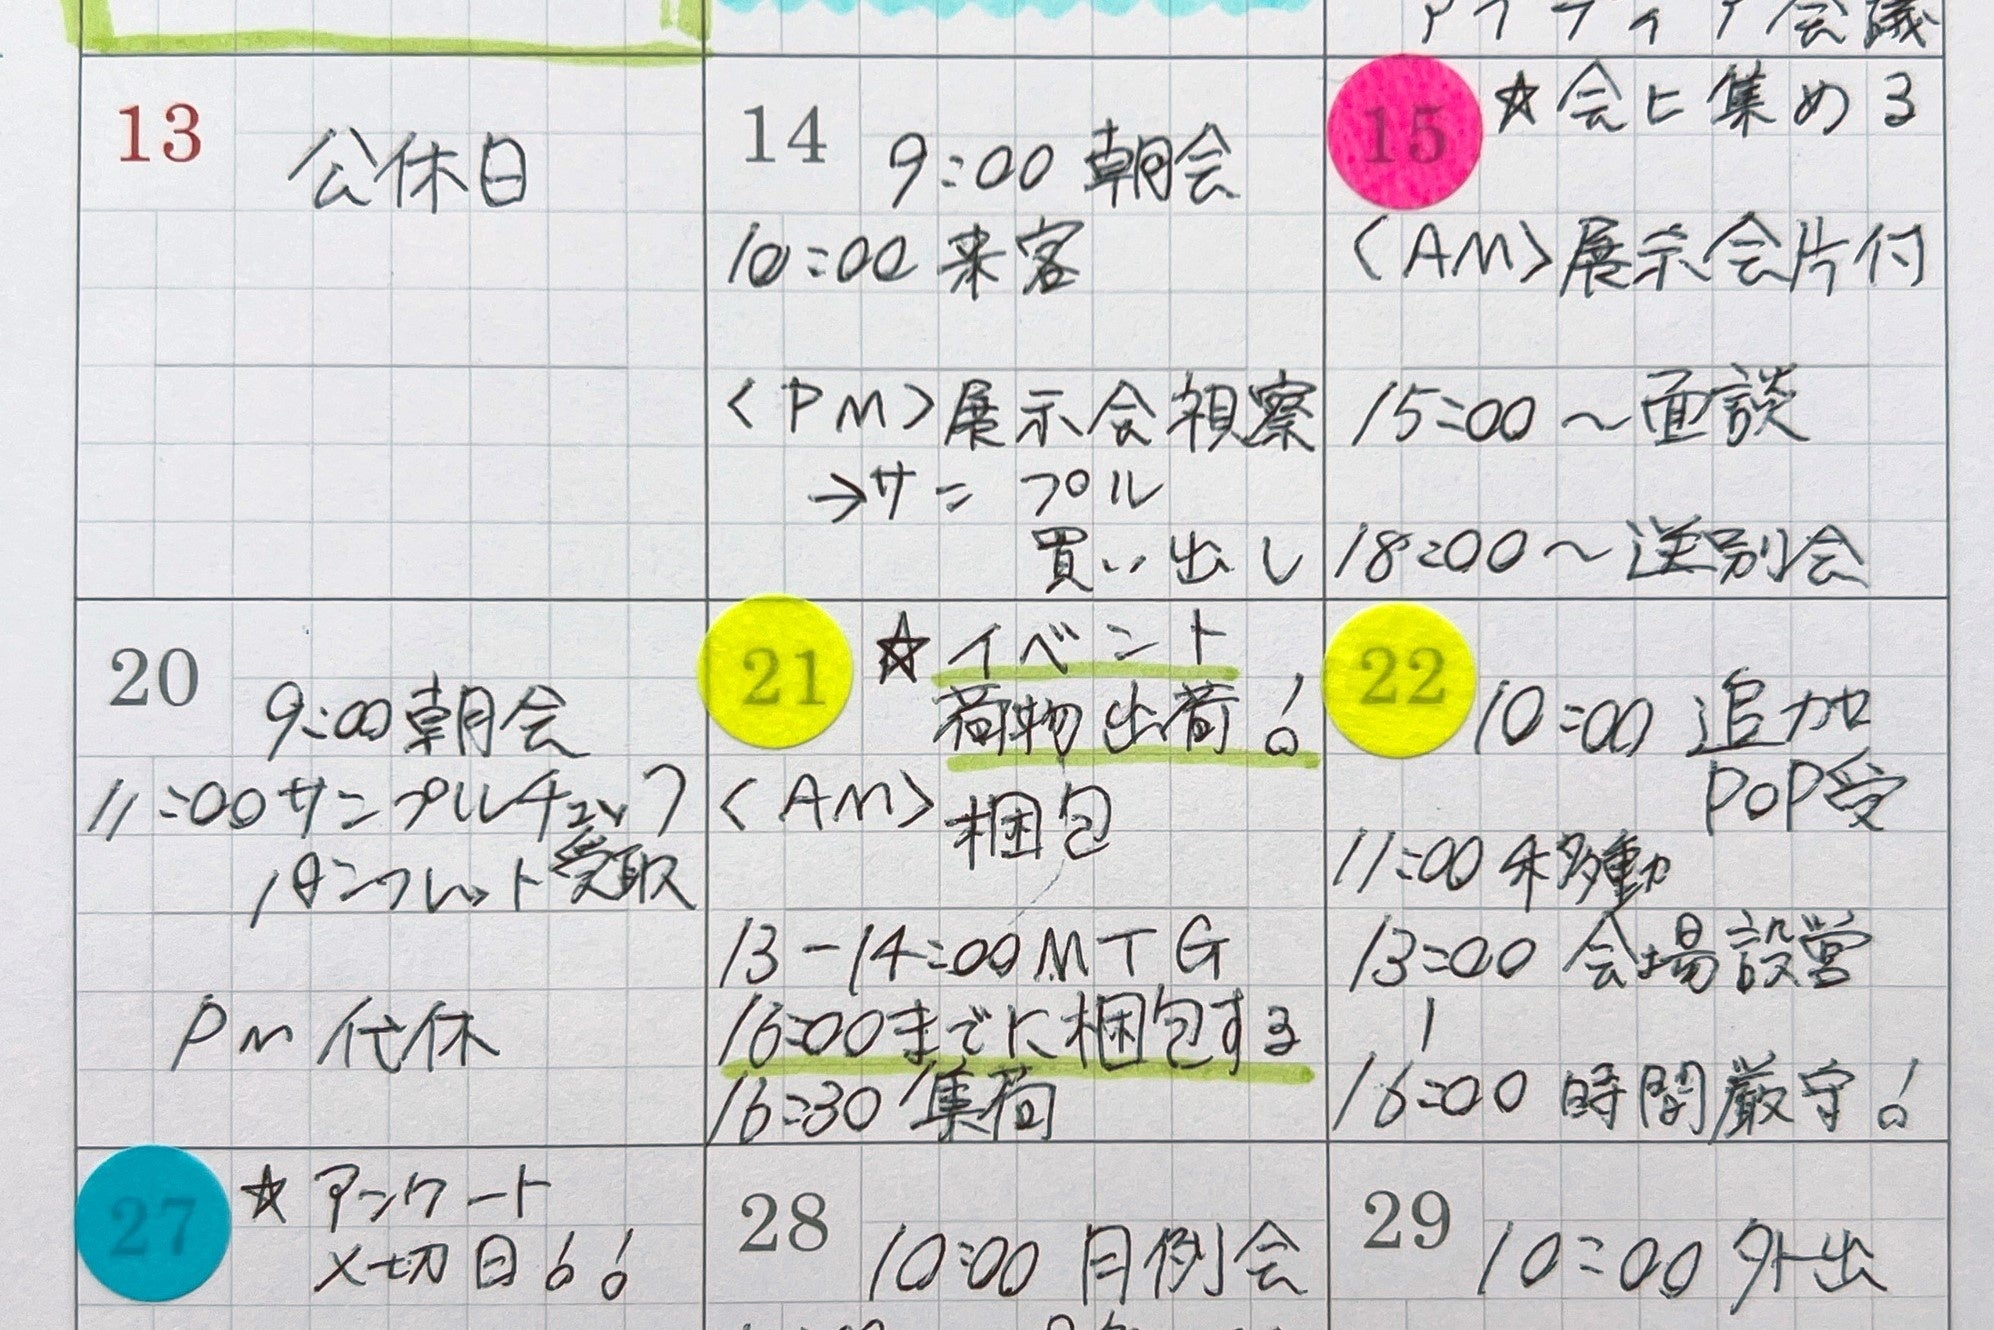 アイディア会議
13 公休日
14 9:00 朝会
10:00 来客
<PM>展示会視察
→サンプル
買い出し
15 ☆会ヒ集める
<AM>展示会片付
15:00～面談
18:00～送別会
20 9:00 朝会
11:00 サンプルチェック
パンフレット受取
PM 代休
21 ☆イベント
荷物出荷!
<AM> 梱包
13-14:00 MTG
16:00までに梱包する
16:30 集荷
22 10:00 追加
POP受
11:00 移動
13:00 会場設営
|
16:00 時間厳守!
27 ☆アンケート
〆切日!!
28 10:00 月例会
29 10:00 外出